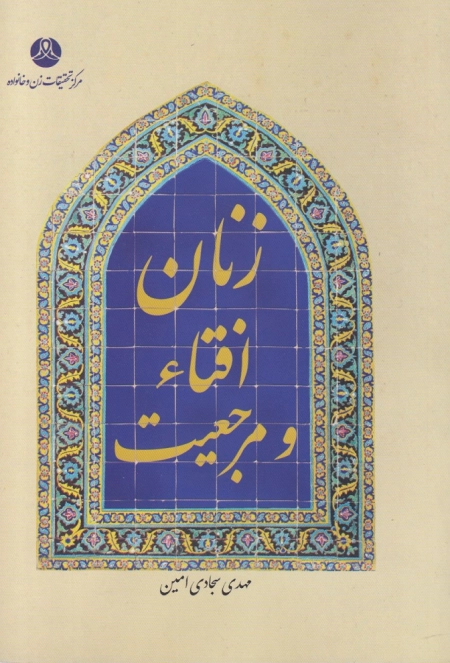 مرکز تحقیقات زن و خانواده
زنان
افتاء
و مرجعیت
مهدی سجادی امین